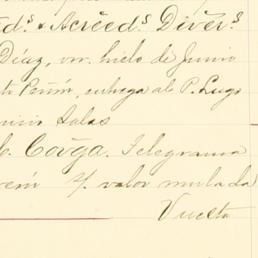 ed.s & Acréed.s Diver.s
Díaz, vr. hielo de Junio
Peñón, entrega al P. Lugo
Salas
Covga. Telegrama
valor mulada
Vuelta